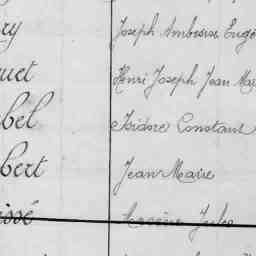 ry Joseph Ambroise Eugè
uet Henri Joseph Jean Mar
bel Isidore Constant
bert Jean Marie
issé Jules